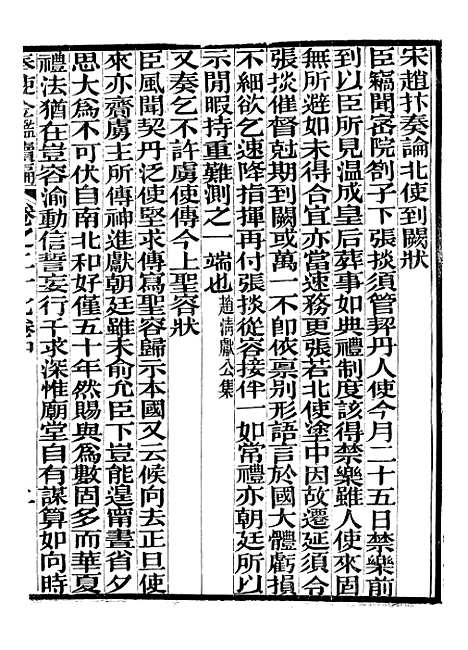 宋趙抃奏論北使到闕狀
臣竊聞密院劄子下張掞須管契丹人使今月二十五日禁樂前
到以臣所見温成皇后葬事如典禮制度該得禁樂雖人使來固
無所避如未得合宜亦當速務更張若北使塗中因故遷延須令
張掞催督剋期到闕或萬一不卽依禀别形語言於國大體虧損
不細欲乞速降指揮再付張掞從容接伴一如常禮亦朝廷所以
示閒暇持重難測之一端也趙清獻公集
又奏乞不許虜使傳今上聖容狀
臣風聞契丹泛使堅求傳寫聖容歸示本國又云候向去正旦使
來亦齎虜主所傳神進獻朝廷雖未俞允臣下豈能遑甯晝省夕
思大爲不可伏自南北和好僅五十年然賜與爲數固多而華夏
禮法猶在豈容渝動信誓妄行干求深惟廟堂自有謀算如向時
奉使金鑑續編